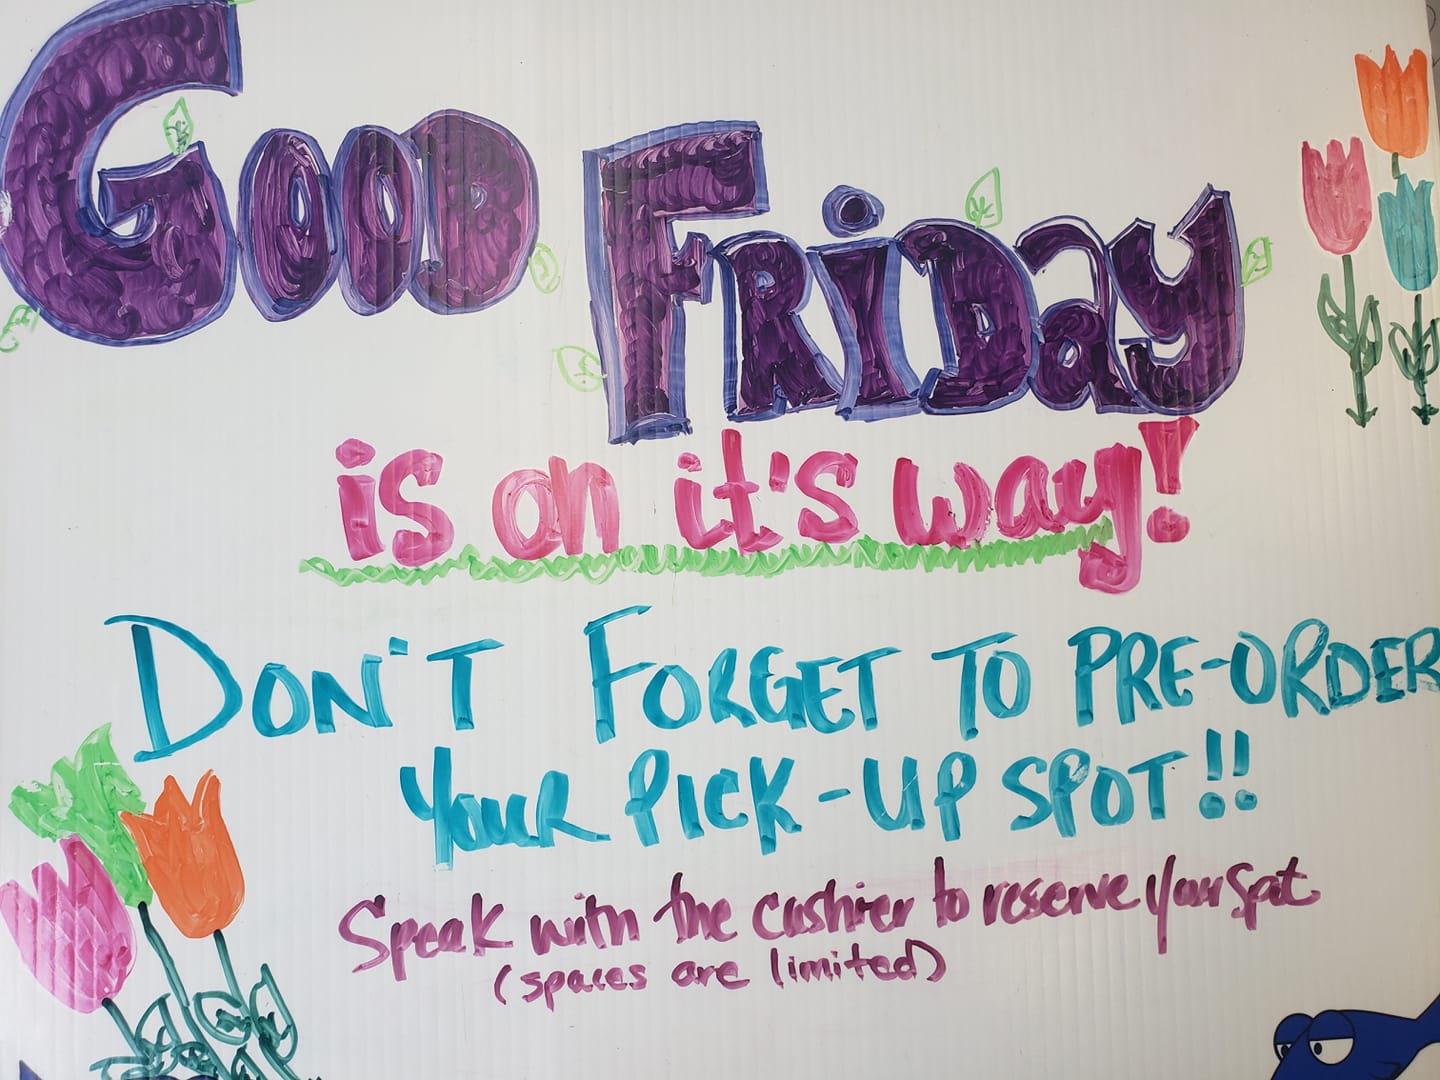 GOOD FRiDay
is on it's way!
DON'T FORGET TO PRE-ORDER
YOUR PICK-UP SPOT!!
Speak with the cashier to reserve your spot
(spaces are limited)